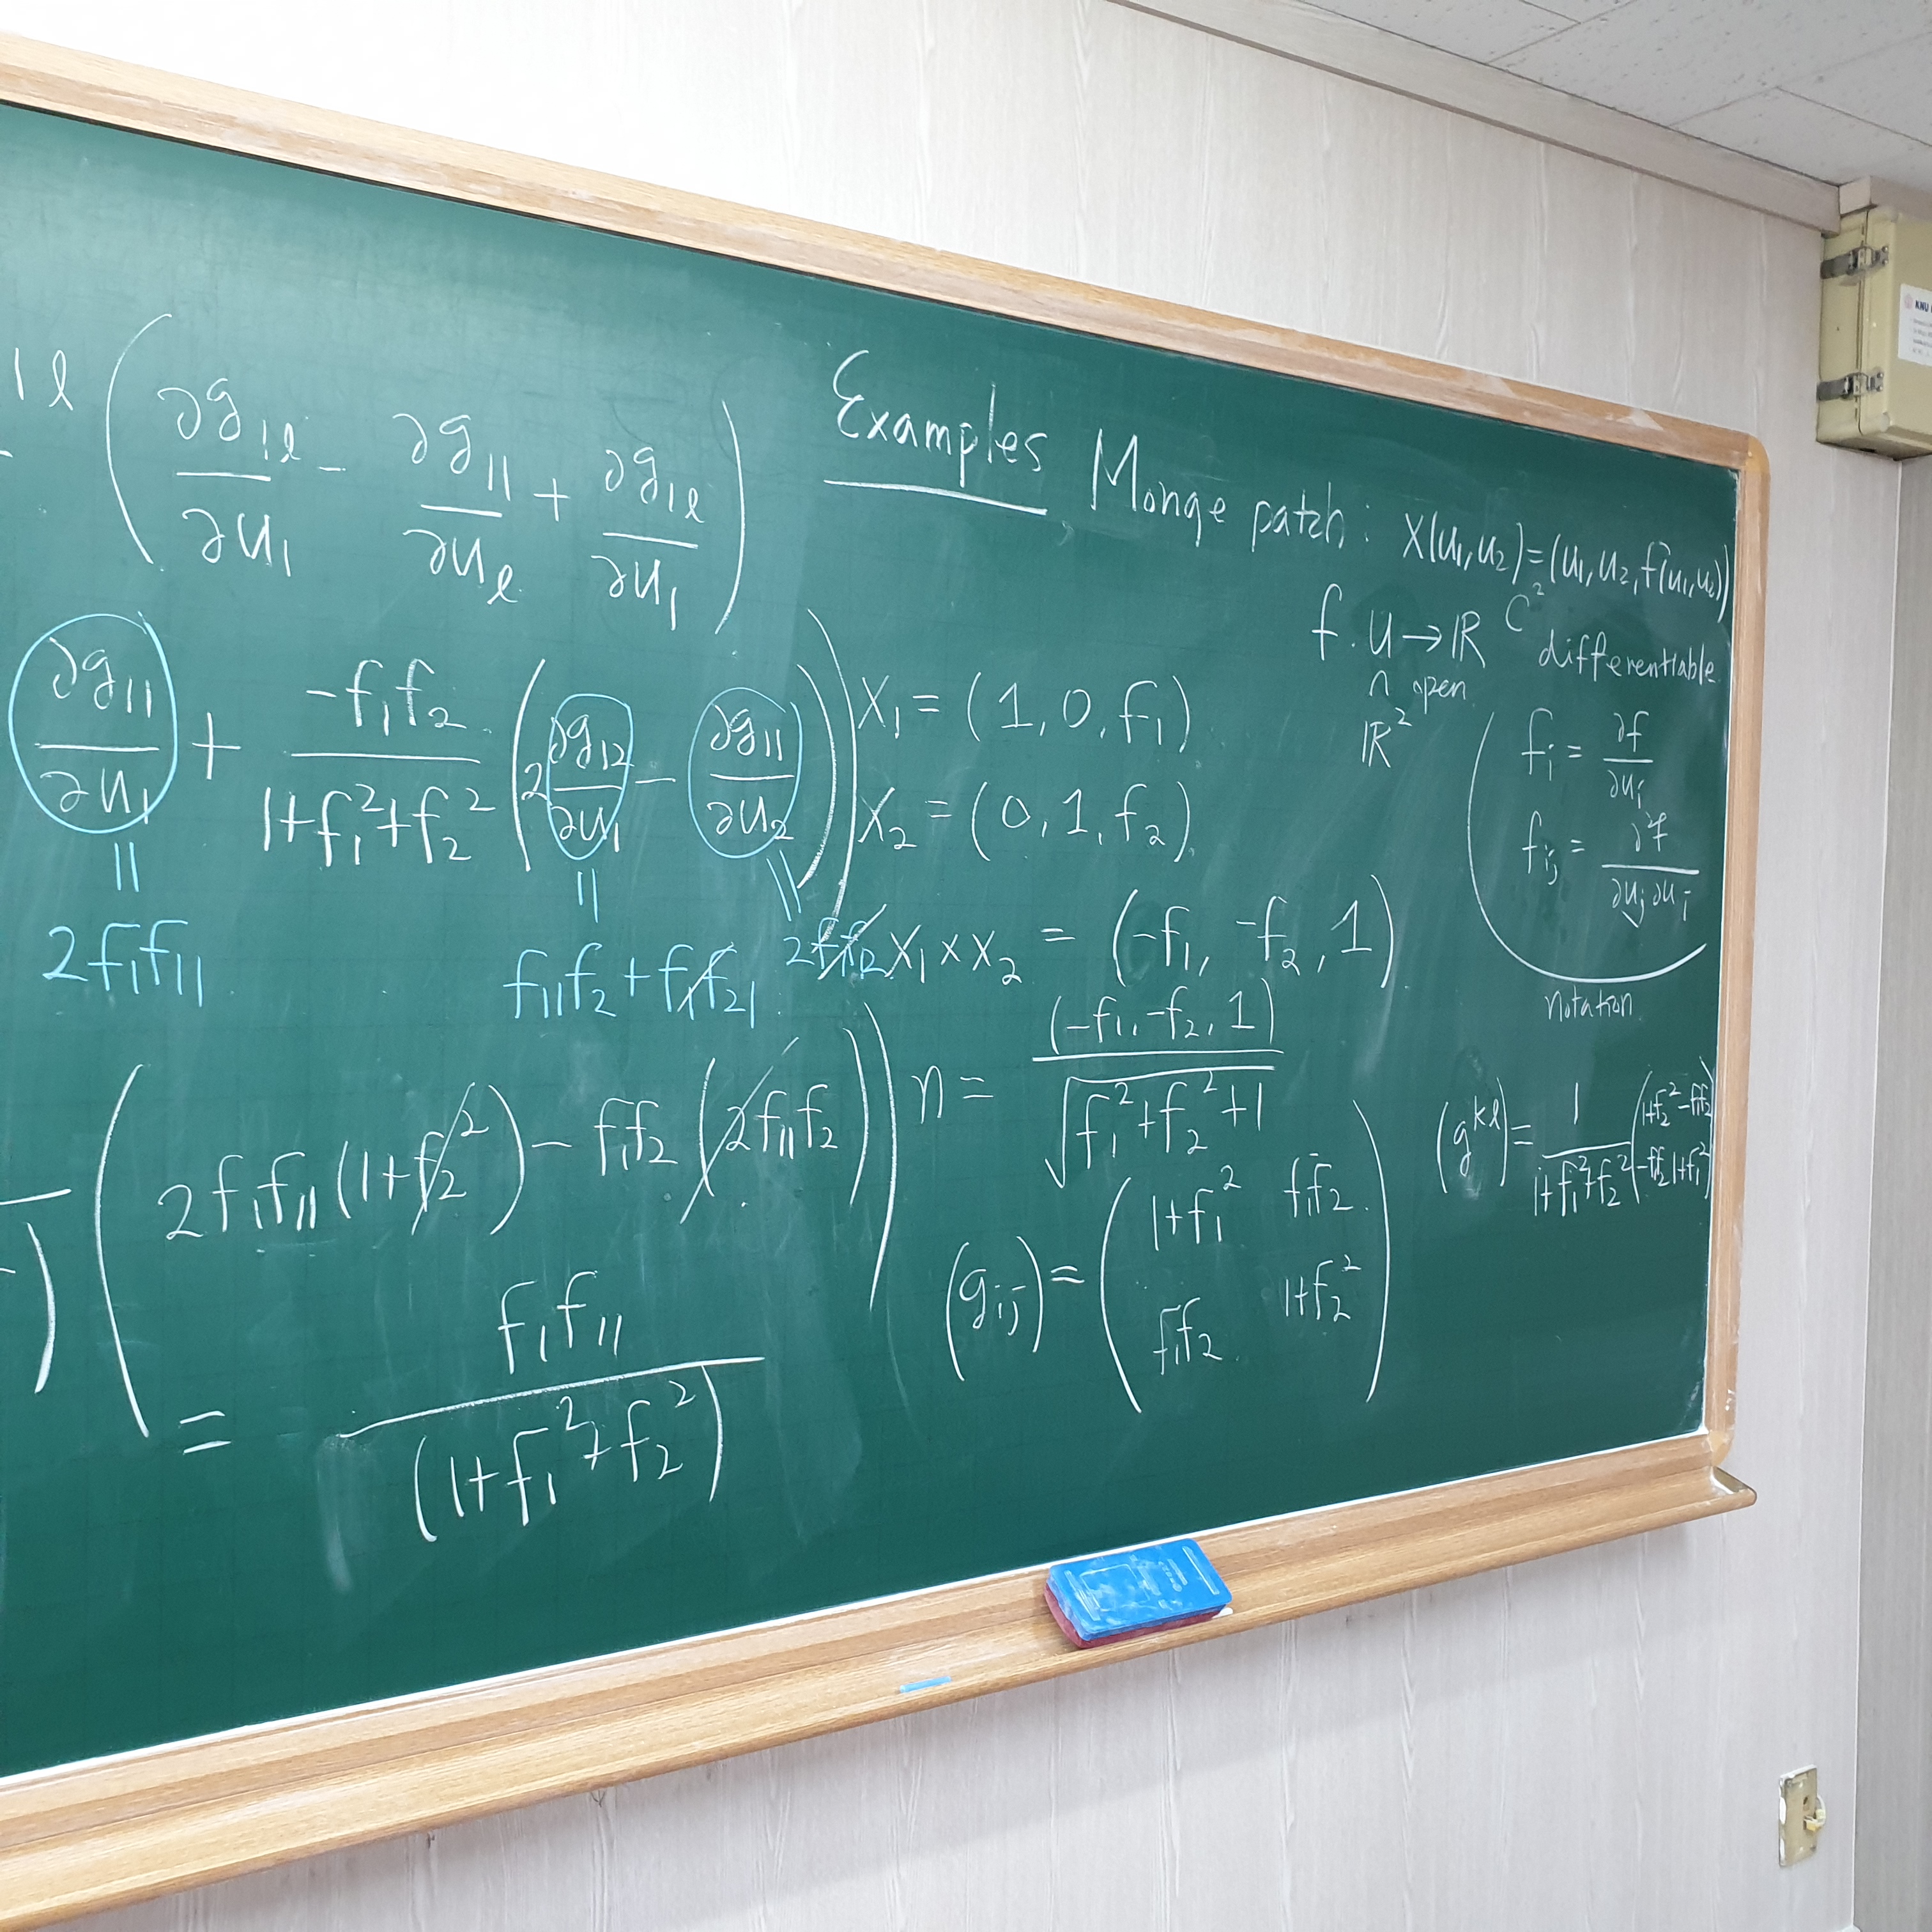 1ℓ ( ∂g₁ℓ/∂u₁ - ∂g₁₁/∂uℓ + ∂g₁ℓ/∂u₁ )
∂g₁₁/∂u₁ + -f₁f₂/1+f₁²+f₂² ( 2 ∂g₁₂/∂u₁ - ∂g₁₁/∂u₂ ) )
|| || ||
2f₁f₁₁ f₁₁f₂ + f₁f₂₁ 2f₁f₁₂
( 2f₁f₁₁(1+f₂²) - f₁f₂(2f₁₁f₂) )
= f₁f₁₁/(1+f₁²+f₂²)
Examples, Monge patch : X(u₁,u₂)=(u₁,u₂,f(u₁,u₂))
f : U → ℝ C² differentiable
∩ open
ℝ²
X₁ = (1, 0, f₁)
X₂ = (0, 1, f₂)
X₁ × X₂ = (-f₁, -f₂, 1)
n = (-f₁, -f₂, 1)/√f₁²+f₂²+1
(gᵢⱼ) = ( 1+f₁² f₁f₂
f₁f₂ 1+f₂² )
fᵢ = ∂f/∂uᵢ
fᵢⱼ = ∂²f/∂uⱼ∂uᵢ
notation
(gᵏˡ) = 1/1+f₁²+f₂² ( 1+f₂² -f₁f₂
-f₁f₂ 1+f₁² )
KNU